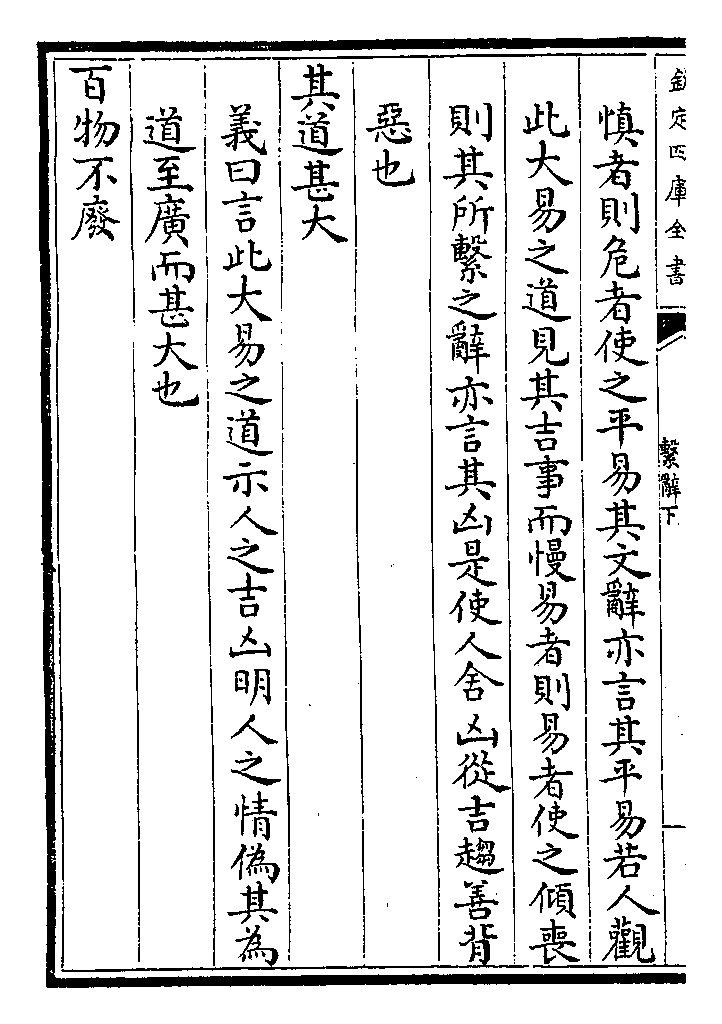 欽定四庫全書
繫辭下
慎者則危者使之平易其文辭亦言其平易若人觀
此大易之道見其吉事而慢易者則易者使之傾喪
則其所繫之辭亦言其凶是使人舍凶從吉趨善背
惡也
其道甚大
義曰言此大易之道示人之吉凶明人之情偽其為
道至廣而甚大也
百物不廢